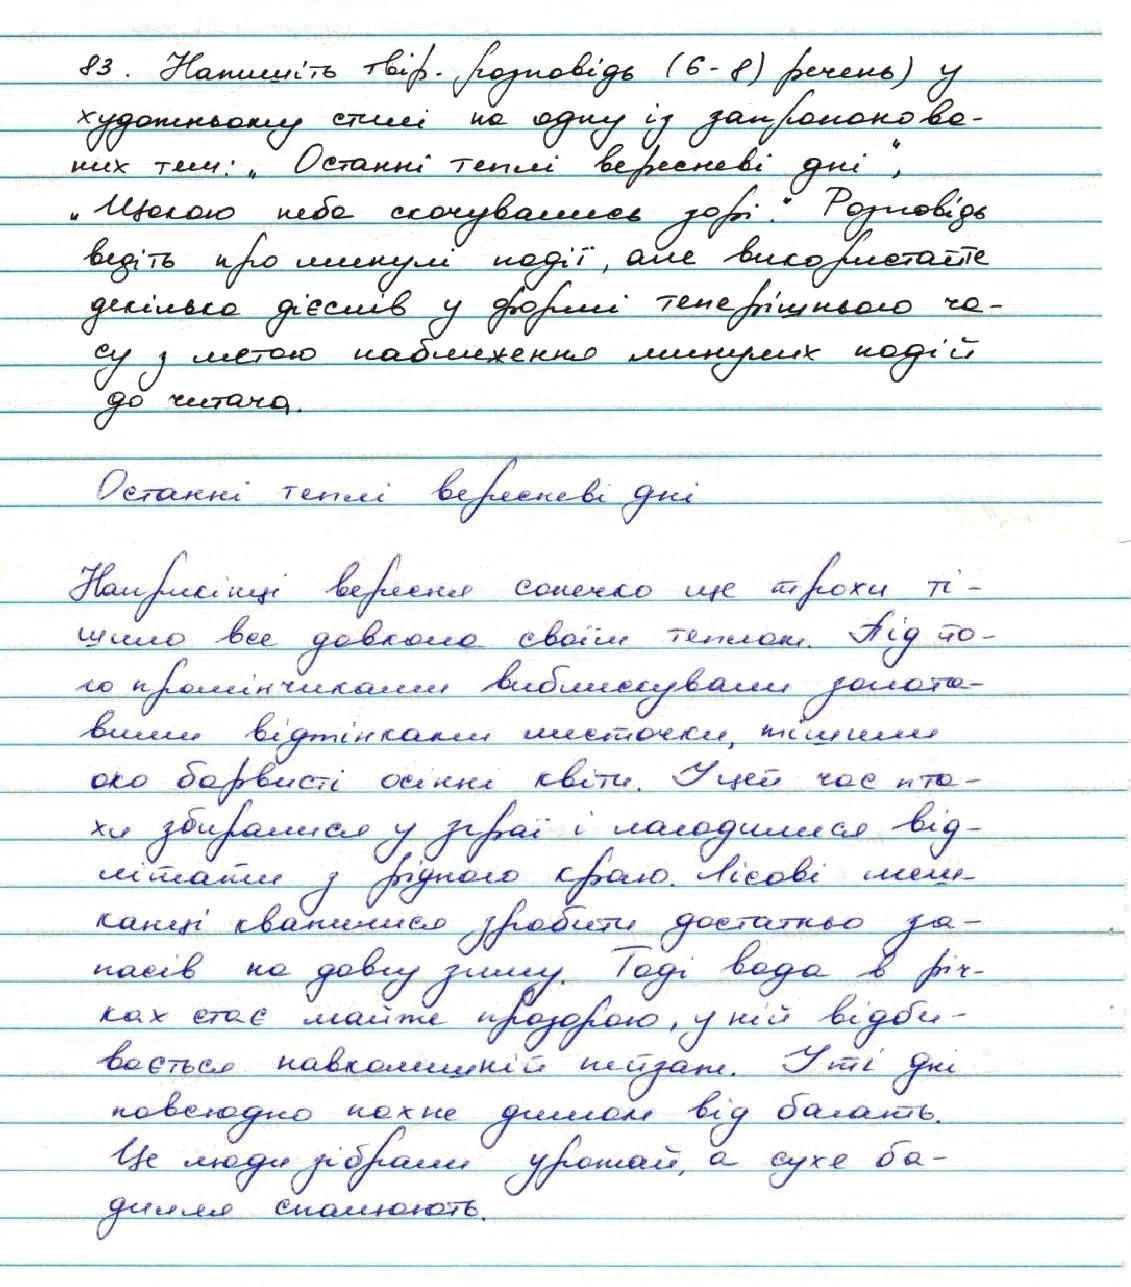 83. Напишіть твір. розповідь (6-8) речень) у
художньому стилі на одну із запропонова-
них тем: „Останні теплі вересневі дні",
„Щокою неба скочувались зорі." Розповідь
ведіть про минулі події, але використайте
декілька дієслів у формі теперішнього ча-
су з метою наближення минулих подій
до читача.
Останні теплі вересневі дні
Наприкінці вересня сонечко ще трохи ті-
шило все довкола своїм теплом. Під йо-
го промінчиками виблискували золота-
вими відтінками листочки, тішили
око барвисті осінні квіти. У цей час пта-
хи збиралися у зграї і лагодилися від-
літати з рідного краю. Лісові меш-
канці квапилися зробити достатньо за-
пасів на довгу зиму. Тоді вода в річ-
ках стає майже прозорою, у ній відби-
вається навколишній пейзаж. У ті дні
повсюдно пахне димом від багать.
Це люди зібрали урожай, а сухе ба-
дилля спалюють.